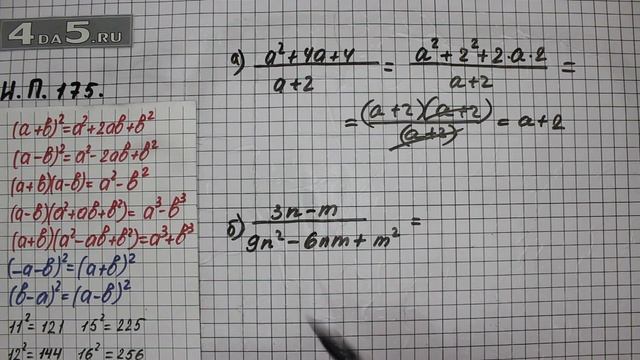 4DA5.RU
Н.П. 175.
(a+в)²=a²+2aв+в²
(a-в)²=a²-2aв+в²
(a+в)(a-в)=a²-в²
(a-в)(a²+aв+в²)=a³-в³
(a+в)(a²-aв+в²)=a³+в³
(-a-в)²=(a+в)²
(в-a)²=(a-в)²
11²=121 15²=225
12²=144 16²=256
а) (a²+4a+4)/(a+2) = (a²+2²+2·a·2)/(a+2) =
= (a+2)(a+2)/(a+2) = a+2
б) (3n-m)/(9n²-6nm+m²) =